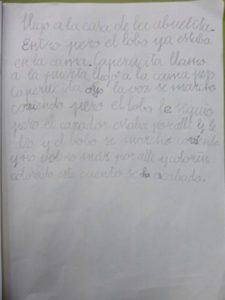 llego a la casa de la abuelita.
Entro pero el lobo ya estaba
en la cama. Caperucita llamo
a la puerta llego a la cama pero
caperucita oyo la voz se marcho
corriendo pero el lobo le siguio
pero el cazador estaba por alli y le
vio y el lobo se marcho corriendo
y no volvio mas por alli y colorin
colorado este cuento se ha acabado.